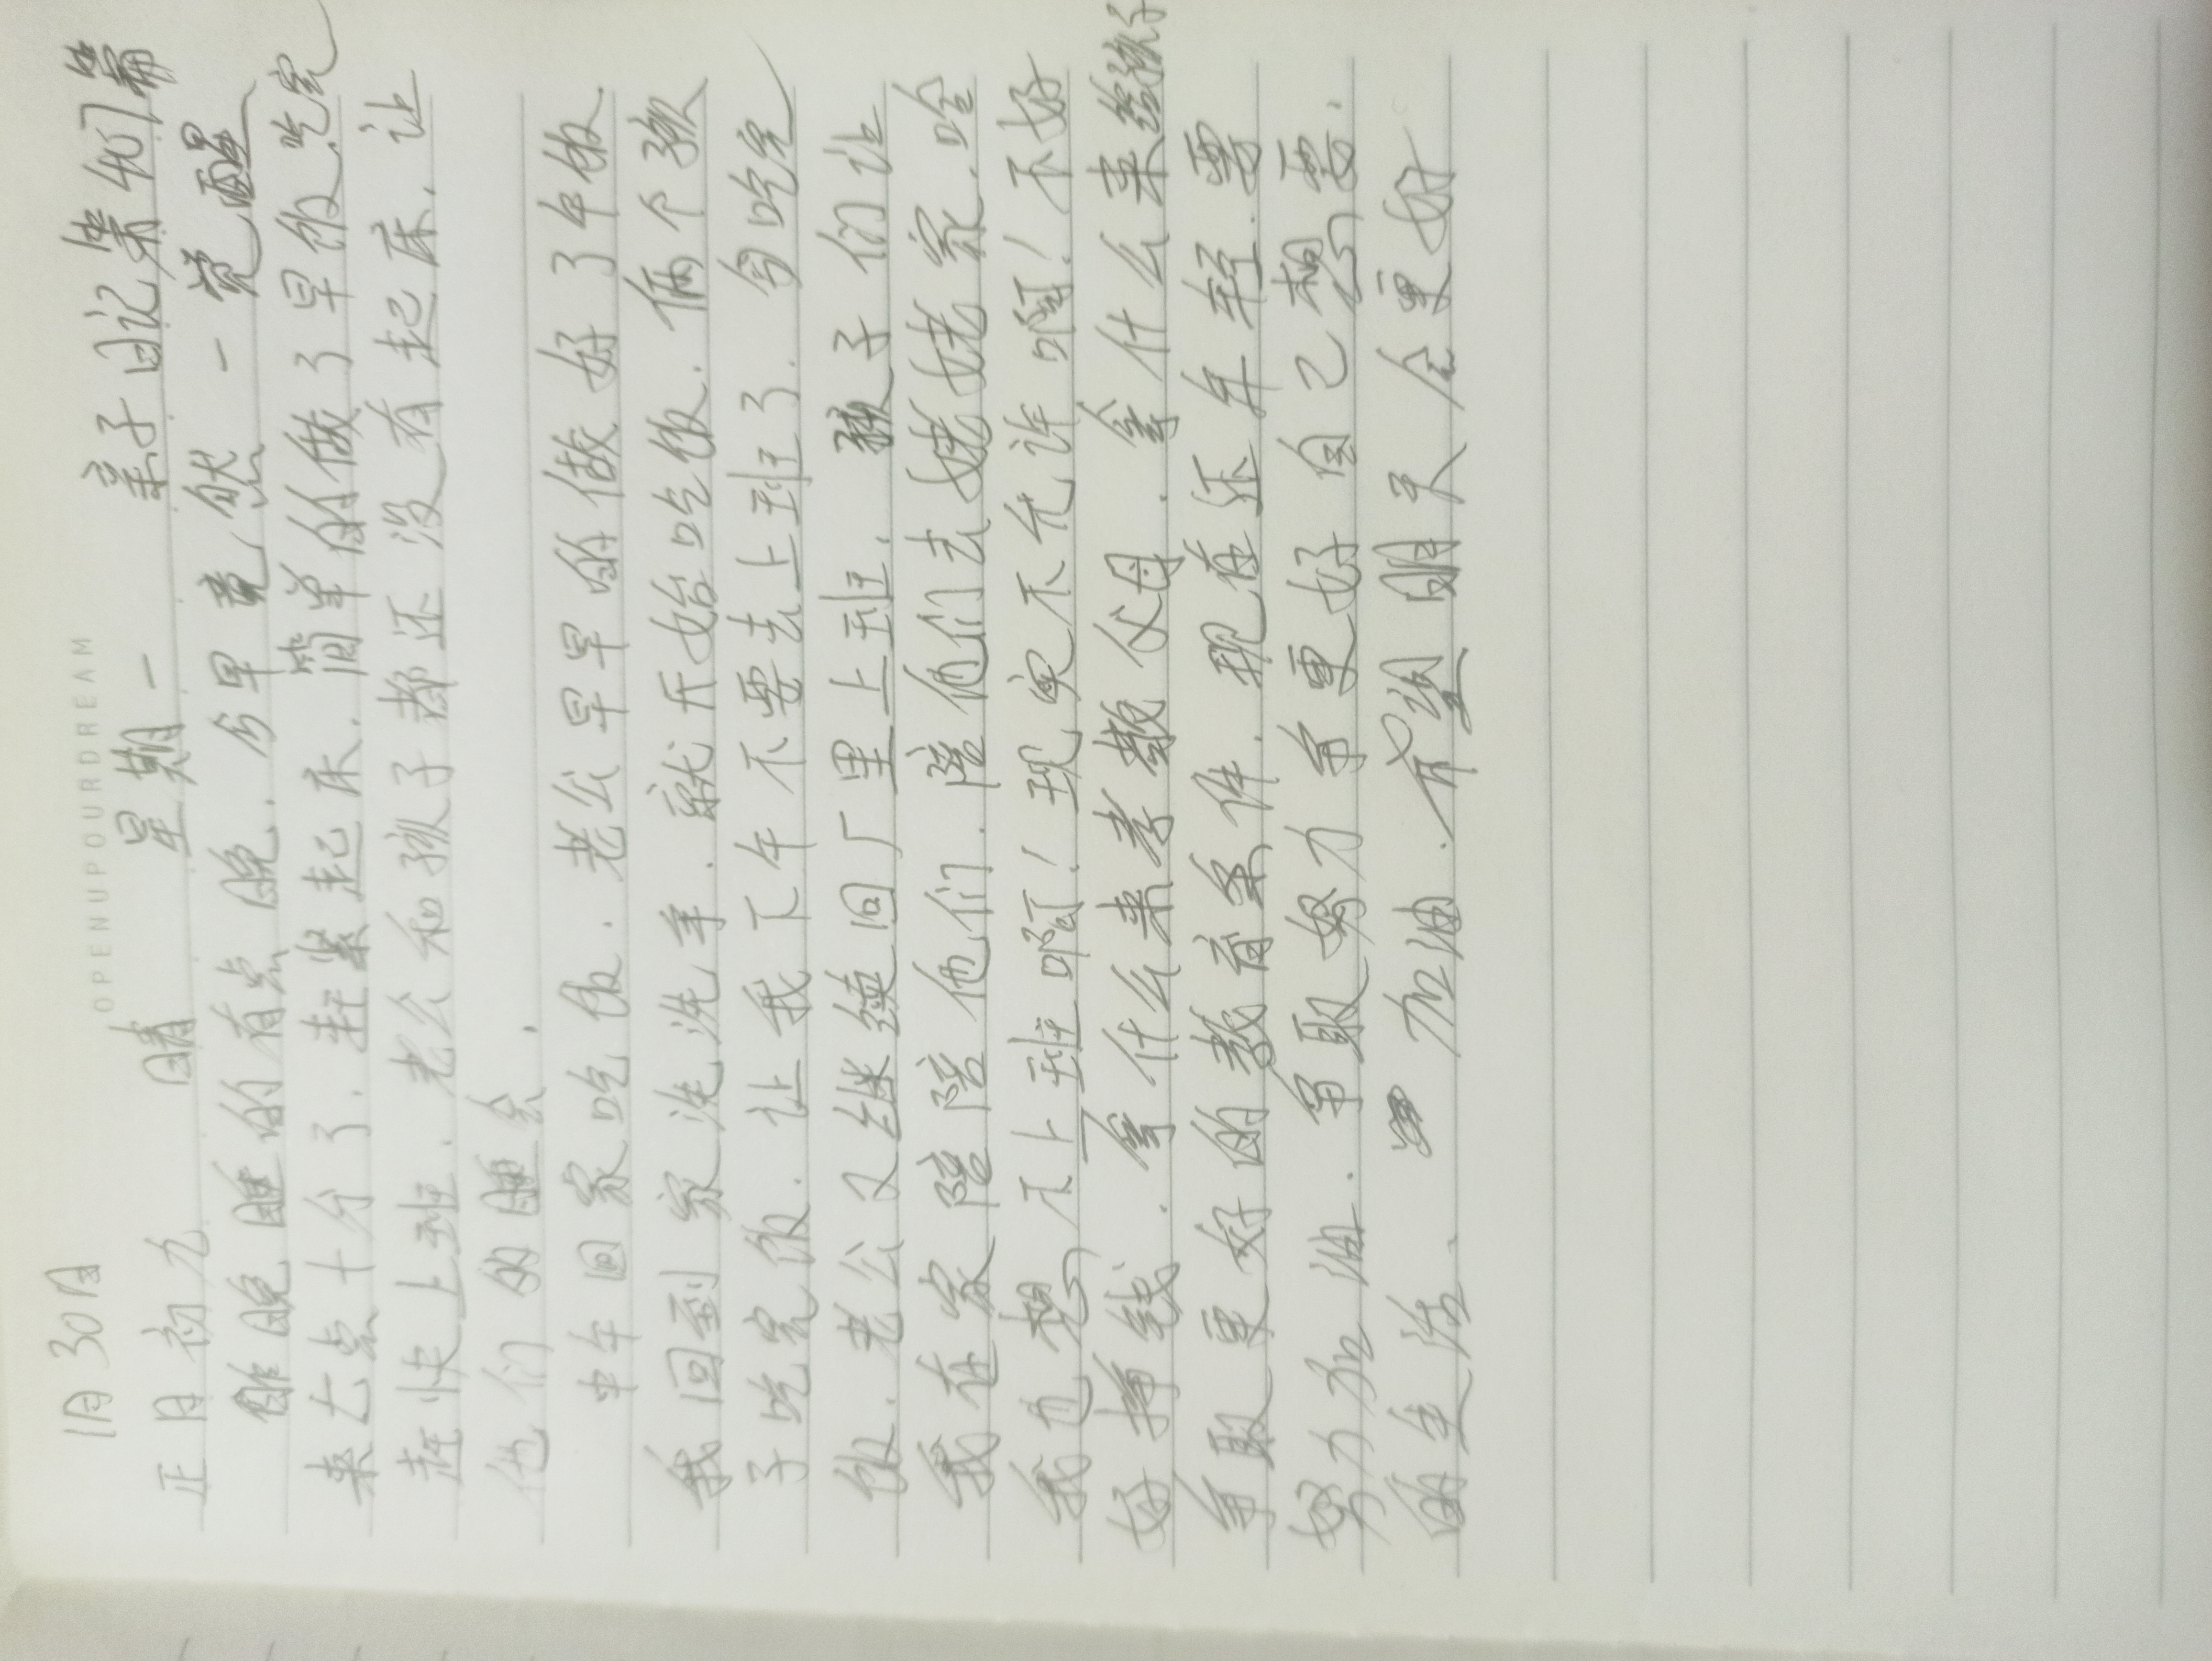 OPENUPOURDREAM
1月30日
正月初九 晴 星期一 亲子日记第407篇
昨晚睡的有点晚.今早竟然一觉醒
来七点十分了.赶紧起床.简单的做了早饭.吃完
赶快上班.老公和孩子都还没有起床.让
他们多睡会.
中午回家吃饭.老公早早的做好了午饭.
我回到家洗洗手.就开始吃饭.俩个孩
子吃完饭.让我下午不要去上班了.匆吃完
饭.老公又继续回厂里上班.孩子们让
我在家陪陪他们.陪他们去姥姥家.哈
我也想不上班啊!现实不允许啊!不好
好挣钱.拿什么来孝敬父母.拿什么来给孩子
争取更好的教育条件.现在还年轻.要
努力加油.争取努力争更好自己想要.
的生活. 加油.希望明天会更好